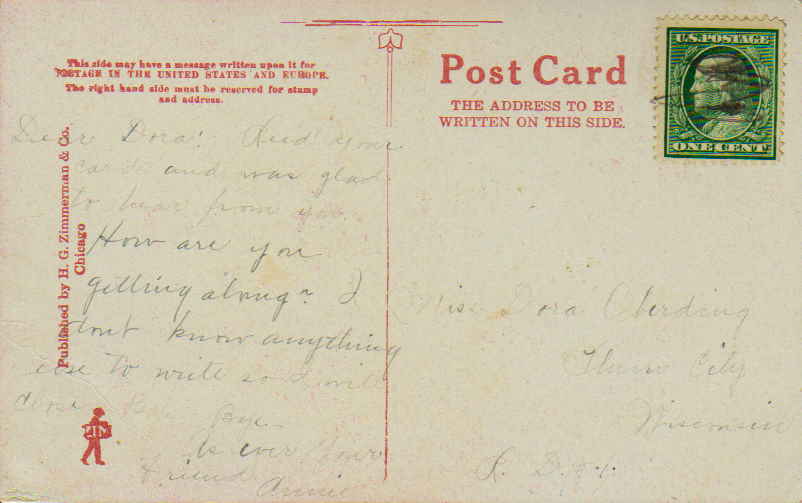 This side may have a message written upon it for
POSTAGE IN THE UNITED STATES AND EUROPE.
The right hand side must be reserved for stamp
and address.
Post Card
THE ADDRESS TO BE
WRITTEN ON THIS SIDE.
U.S. POSTAGE
ONE CENT
Published by H. G. Zimmerman & Co.
Chicago
ZIM
Dear Dora! Recd your
card and was glad
to hear from you.
How are you
getting along? I
dont know anything
else to write so I will
close Bye Bye
As ever Your
Friend
Annie
Miss Dora Oberding
City
Wisconsin
R. D. #1.